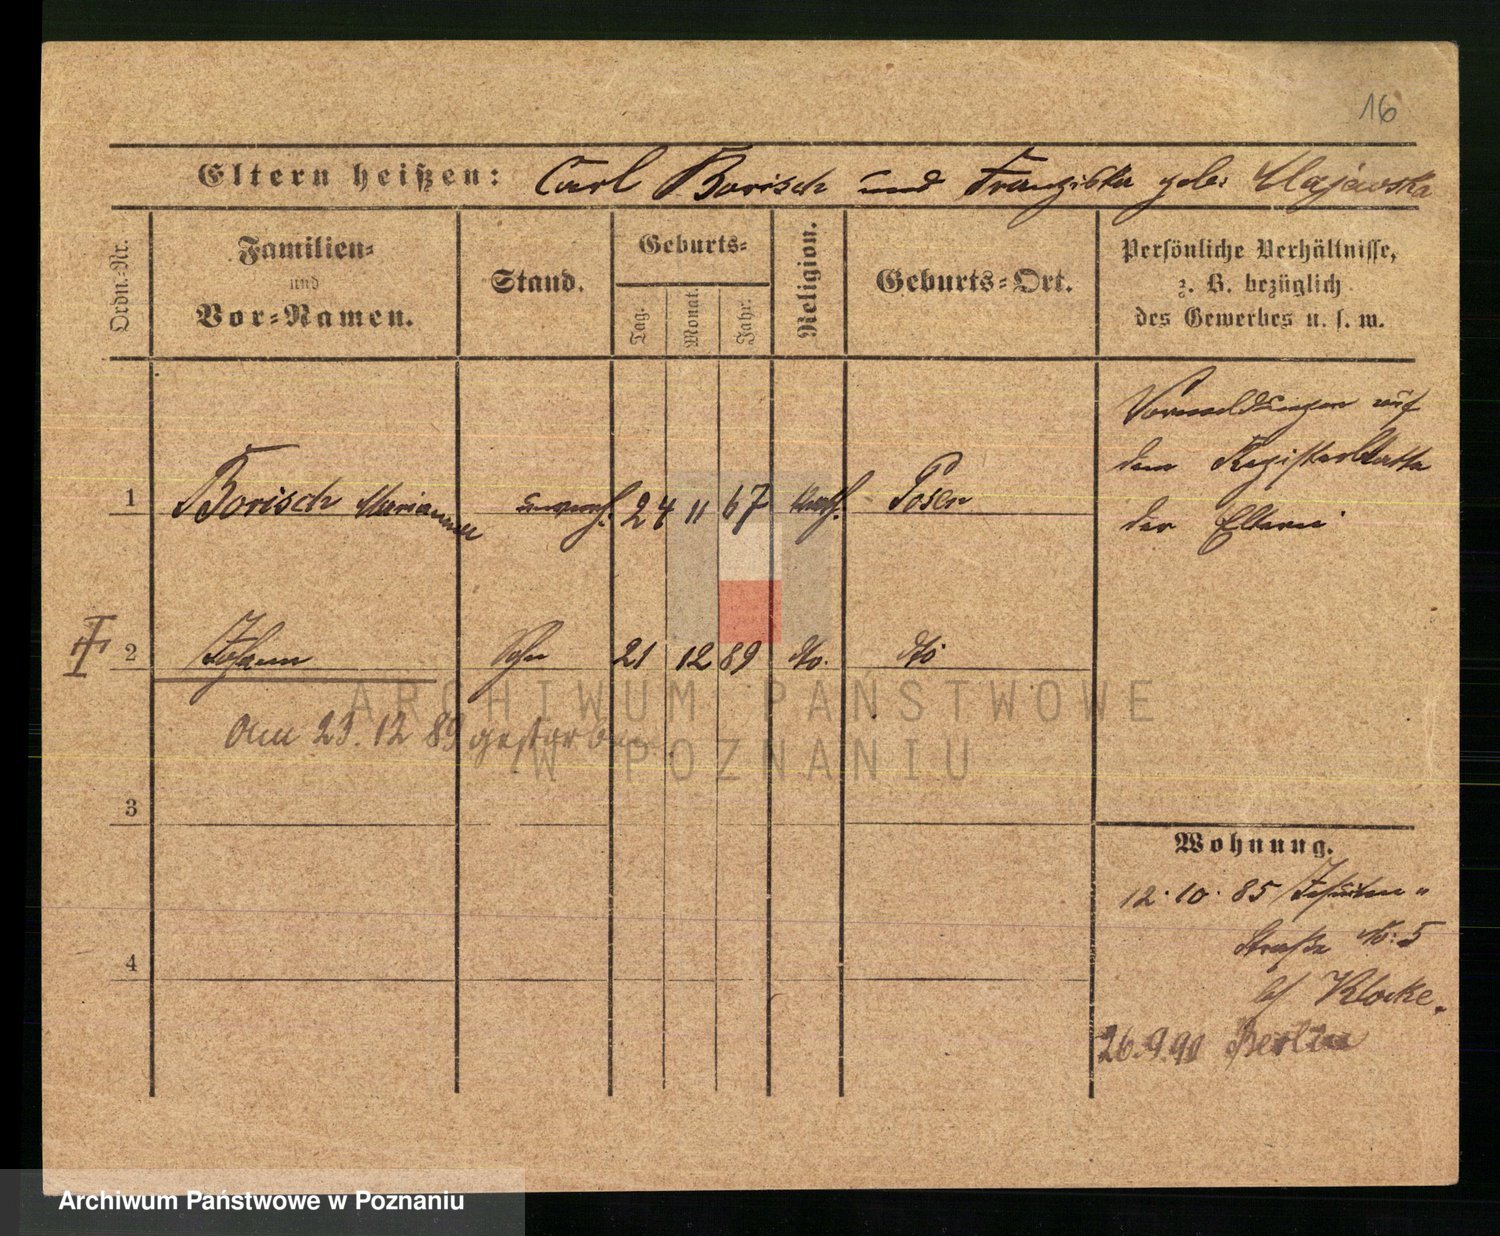 16
Eltern heißen: Carl Borisch und Franziska geb: Majewska
Ordn.-Nr.
Familien-
und
Vor-Namen.
Stand.
Geburts-
Tag.
Monat.
Jahr.
Religion.
Geburts-Ort.
Persönliche Verhältnisse,
z. B. bezüglich
des Gewerbes u. s. w.
Vormeldungen auf
dem Registerblatte
der Eltern
1 Borisch Marianna unverh. 24 11 67 kath. Posen
2 Johann Sohn 21 12 89 do. do
am 23. 12 89 gestorben.
3
4
Wohnung.
12. 10. 85 Jesuiten-
Straße No: 5
bei Klocke.
26.9.90 Berlin
ARCHIWUM PAŃSTWOWE
W POZNANIU
Archiwum Państwowe w Poznaniu